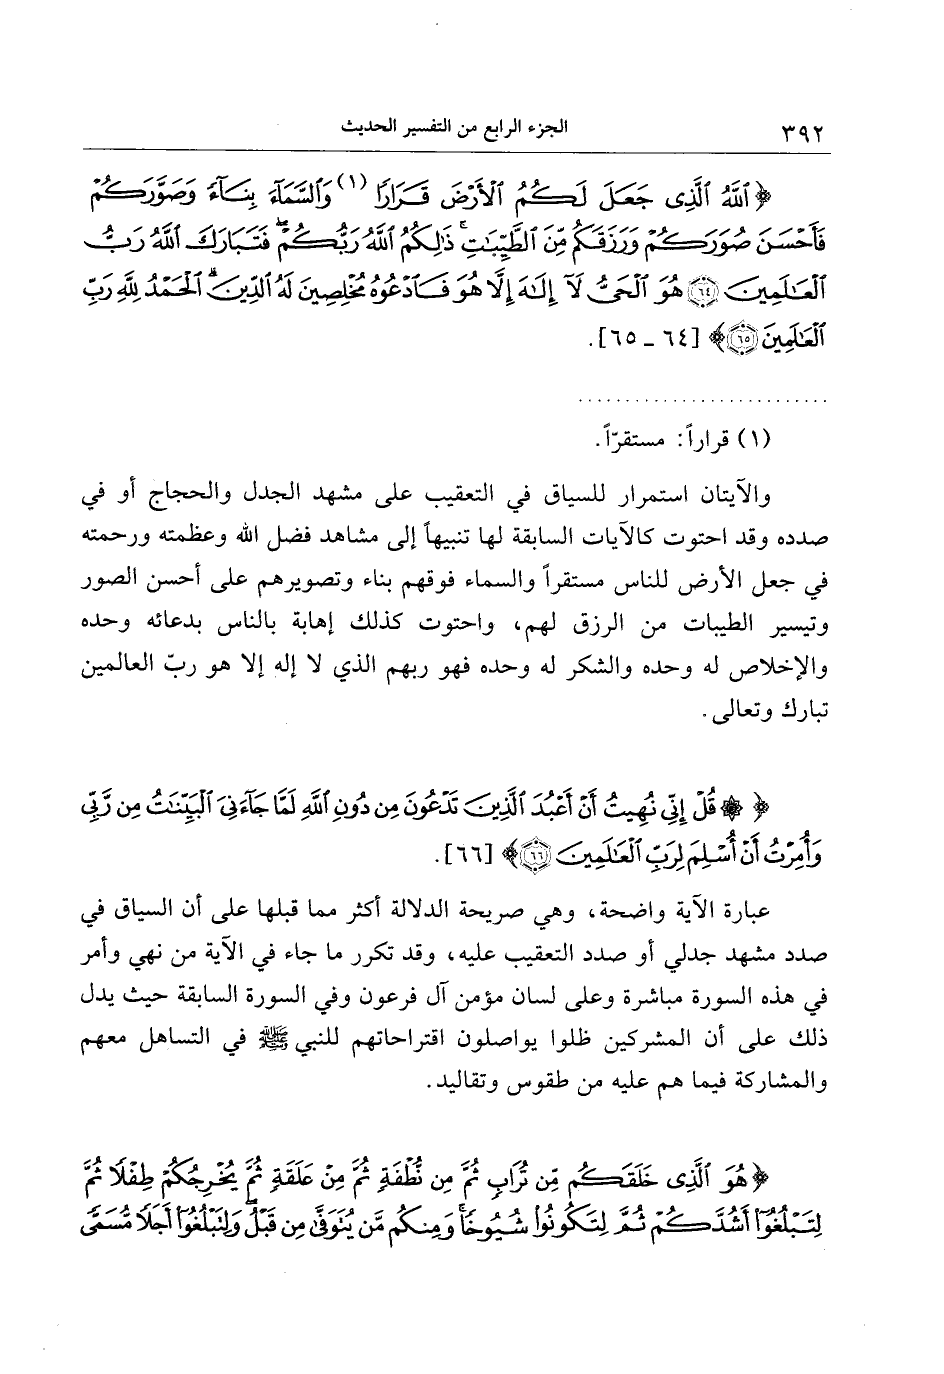 ٣٩٢ الجزء الرابع من التفسير الحديث
﴿ ٱللَّهُ ٱلَّذِى جَعَلَ لَكُمُ ٱلْأَرْضَ قَرَارًا (١) وَٱلسَّمَآءَ بِنَآءً وَصَوَّرَكُمْ
فَأَحْسَنَ صُوَرَكُمْ وَرَزَقَكُم مِّنَ ٱلطَّيِّبَٰتِ ۚ ذَٰلِكُمُ ٱللَّهُ رَبُّكُمْ ۖ فَتَبَارَكَ ٱللَّهُ رَبُّ
ٱلْعَٰلَمِينَ ٦٤ هُوَ ٱلْحَىُّ لَآ إِلَٰهَ إِلَّا هُوَ فَٱدْعُوهُ مُخْلِصِينَ لَهُ ٱلدِّينَ ۗ ٱلْحَمْدُ لِلَّهِ رَبِّ
ٱلْعَٰلَمِينَ ٦٥ ﴾ [٦٤ ـ ٦٥].
(١) قراراً: مستقرّاً.
والآيتان استمرار للسياق في التعقيب على مشهد الجدل والحجاج أو في
صدده وقد احتوت كالآيات السابقة لها تنبيهاً إلى مشاهد فضل الله وعظمته ورحمته
في جعل الأرض للناس مستقراً والسماء فوقهم بناء وتصويرهم على أحسن الصور
وتيسير الطيبات من الرزق لهم، واحتوت كذلك إهابة بالناس بدعائه وحده
والإخلاص له وحده والشكر له وحده فهو ربهم الذي لا إله إلا هو ربّ العالمين
تبارك وتعالى.
﴿ ۞ قُلْ إِنِّى نُهِيتُ أَنْ أَعْبُدَ ٱلَّذِينَ تَدْعُونَ مِن دُونِ ٱللَّهِ لَمَّا جَآءَنِىَ ٱلْبَيِّنَٰتُ مِن رَّبِّى
وَأُمِرْتُ أَنْ أُسْلِمَ لِرَبِّ ٱلْعَٰلَمِينَ ٦٦ ﴾ [٦٦].
عبارة الآية واضحة، وهي صريحة الدلالة أكثر مما قبلها على أن السياق في
صدد مشهد جدلي أو صدد التعقيب عليه، وقد تكرر ما جاء في الآية من نهي وأمر
في هذه السورة مباشرة وعلى لسان مؤمن آل فرعون وفي السورة السابقة حيث يدل
ذلك على أن المشركين ظلوا يواصلون اقتراحاتهم للنبي ﷺ في التساهل معهم
والمشاركة فيما هم عليه من طقوس وتقاليد.
﴿ هُوَ ٱلَّذِى خَلَقَكُم مِّن تُرَابٍ ثُمَّ مِن نُّطْفَةٍ ثُمَّ مِنْ عَلَقَةٍ ثُمَّ يُخْرِجُكُمْ طِفْلًا ثُمَّ
لِتَبْلُغُوٓا۟ أَشُدَّكُمْ ثُمَّ لِتَكُونُوا۟ شُيُوخًا ۚ وَمِنكُم مَّن يُتَوَفَّىٰ مِن قَبْلُ ۖ وَلِتَبْلُغُوٓا۟ أَجَلًا مُّسَمًّى